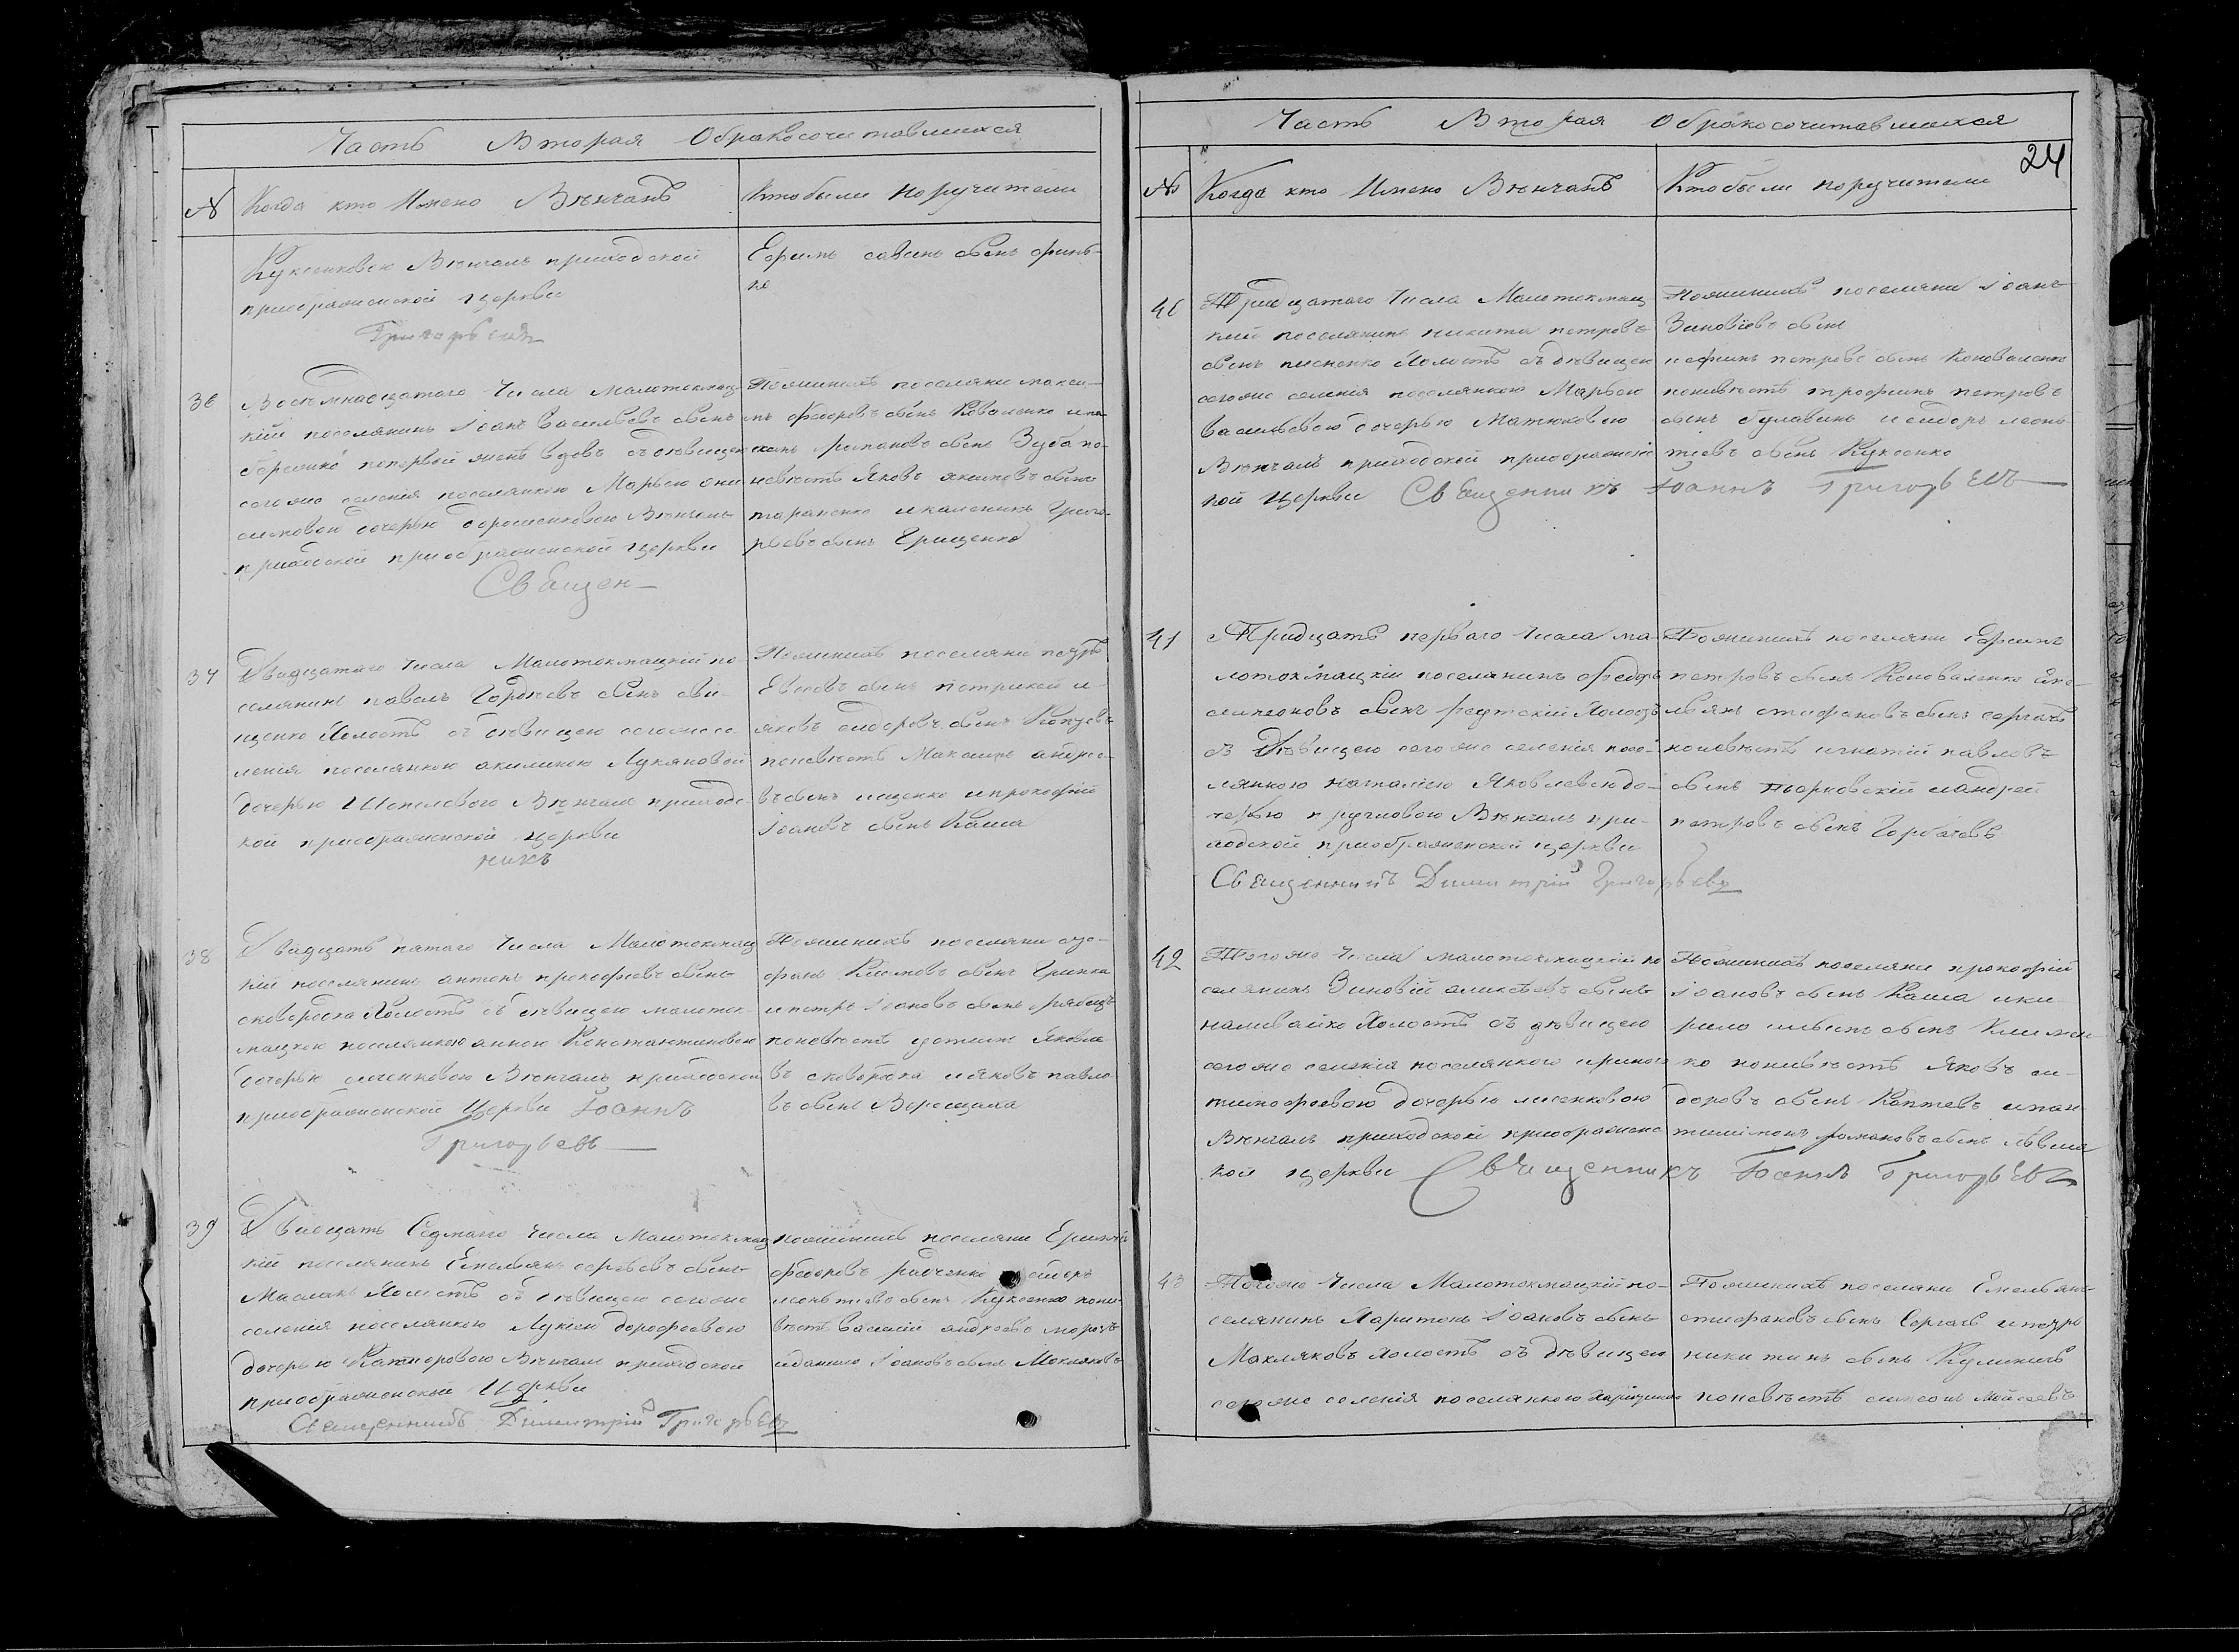 Часть Вторая Обракосочетавшихся
№ Когда кто Имено Вѣнчанъ Кто были поручители
Куксенковою Вѣнчалъ приходской
приображенской Церкви
Григорьевъ
Ефимъ савинъ сынъ финь-
ко
36 Восемнадцатаго Числа Малотокмац
кій поселянинъ Іоанъ Васильевъ сынъ
попервой женѣ вдовъ съ дѣвицею
сегоже селенія поселянкою Марьею они
симовою дочерью дорошенковою Вѣнчалъ
приходской приображенской церкви
Священ-
Поженихѣ поселяни макси-
мъ Федоровъ сынъ Коваленко и
романовъ сынъ Зуба по
невѣстѣ Яковъ якимовъ сынъ
тараненко и каленикъ Григо-
рьевъ сынъ Грищенко
37 Двадцатаго Числа Малотокмацкій по-
селянинъ павелъ Гордѣевъ сынъ сви-
щенко Холостъ съ дѣвицею сегоже се-
ленія поселянкою акилиною Лукяновой
дочерью Шепелевого Вѣнчалъ приходс-
кой приображенской церкви
никъ
Поженихѣ поселяни петръ
сынъ петрикей и
яковъ сидоровъ сынъ Коптевъ
поневѣстѣ Максимъ андрее-
въ сынъ ищенко и прокофій
Іоановъ сынъ Каша
38 Двадцать пятаго Числа Малотокмац
кій поселянинъ антонъ прокофьевъ сынъ
сковородка Холостъ съ дѣвицею малоток-
мацкою поселянкою анною Константиновою
дочерью Вѣнчалъ приходской
приображенской Церкви Іоаннъ
Григорьевъ
Поженихѣ поселяни
Климовъ сынъ Гринка
и петръ Іоановъ сынъ
поневѣстѣ устимъ Яковле
въ сковородка и яковъ павло
въ сынъ Верещака
39 Двадцать Седмаго Числа Малотокмац
кій поселянинъ Емельянъ сергѣевъ сынъ
Маслакъ Холостъ съ дѣвицею сегоже
селенія поселянкою Лукіею дорофеевою
дочерью Вѣнчалъ приходской
приображенской Церкви
Священникъ Димитрій Григорьевъ
поженихѣ поселяни
федоровъ радченко сидоръ
леонтіевъ сынъ Куксенко поне-
вѣстѣ василій андреевъ морозъ
и данило Іоановъ сынъ Макляковъ
Часть Вторая Обракосочитавшихся
24
№ Когда кто Имено Вѣнчанъ Кто были поручители
40 Тридцатаго Числа Малотокмац
кій поселянинъ никита петровъ
сынъ писненко Холостъ съ дѣвицею
сегоже селенія поселянкою Марьею
васильевою дочерью Матюковою
Вѣнчалъ приходской приображенс
кой Церкви Священникъ Іоаннъ Григорьевъ
Поженихѣ поселяни Іоанъ
Зиновіевъ сынъ
и ефимъ петровъ сынъ Коноваленко
поневѣстѣ трофимъ петровъ
сынъ булавинъ и сидоръ леонъ
тіевъ сынъ Куксенко
41 Тридцать перваго Числа ма-
лотокмацкій поселянинъ федоръ
симеоновъ сынъ реутскій Холостъ
съ Дѣвицею сегоже селенія посе-
лянкою наталіею Яковлевою до-
черью кругловою Вѣнчалъ при-
ходской приображенской церкви
Священникъ Димитрій Григорьевъ
Поженихѣ поселяни Ефимъ
петровъ сынъ Коноваленко и
стефановъ сынъ сергачъ
поневѣстѣ игнатій павловъ
сынъ и андрей
петровъ сынъ Горбачевъ
42 Того же Числа малотокмацкій по
селянинъ Зиновій алексѣевъ сынъ
наливайко Холостъ съ дѣвицею
сегоже селенія поселянкою ириною
тимофеевою дочерью лисенковою
Вѣнчалъ приходской приображенс
кой церкви Священникъ Іоаннъ Григорьевъ
Поженихѣ поселяни прокофій
Іоановъ сынъ Каша и ки-
рило сынъ Климен
ко поневѣстѣ Яковъ си-
доровъ сынъ Коптевъ и пан-
романовъ сынъ
43 Тогоже Числа Малотокмацкій по-
селянинъ Харитонъ Іоановъ сынъ
Макляковъ холостъ съ дѣвицею
сегоже селенія поселянкою
Поженихѣ поселяни Емельянъ
стефановъ сынъ Сергачъ и петръ
никитинъ сынъ Куликовъ
поневѣстѣ симеонъ Мойсеевъ